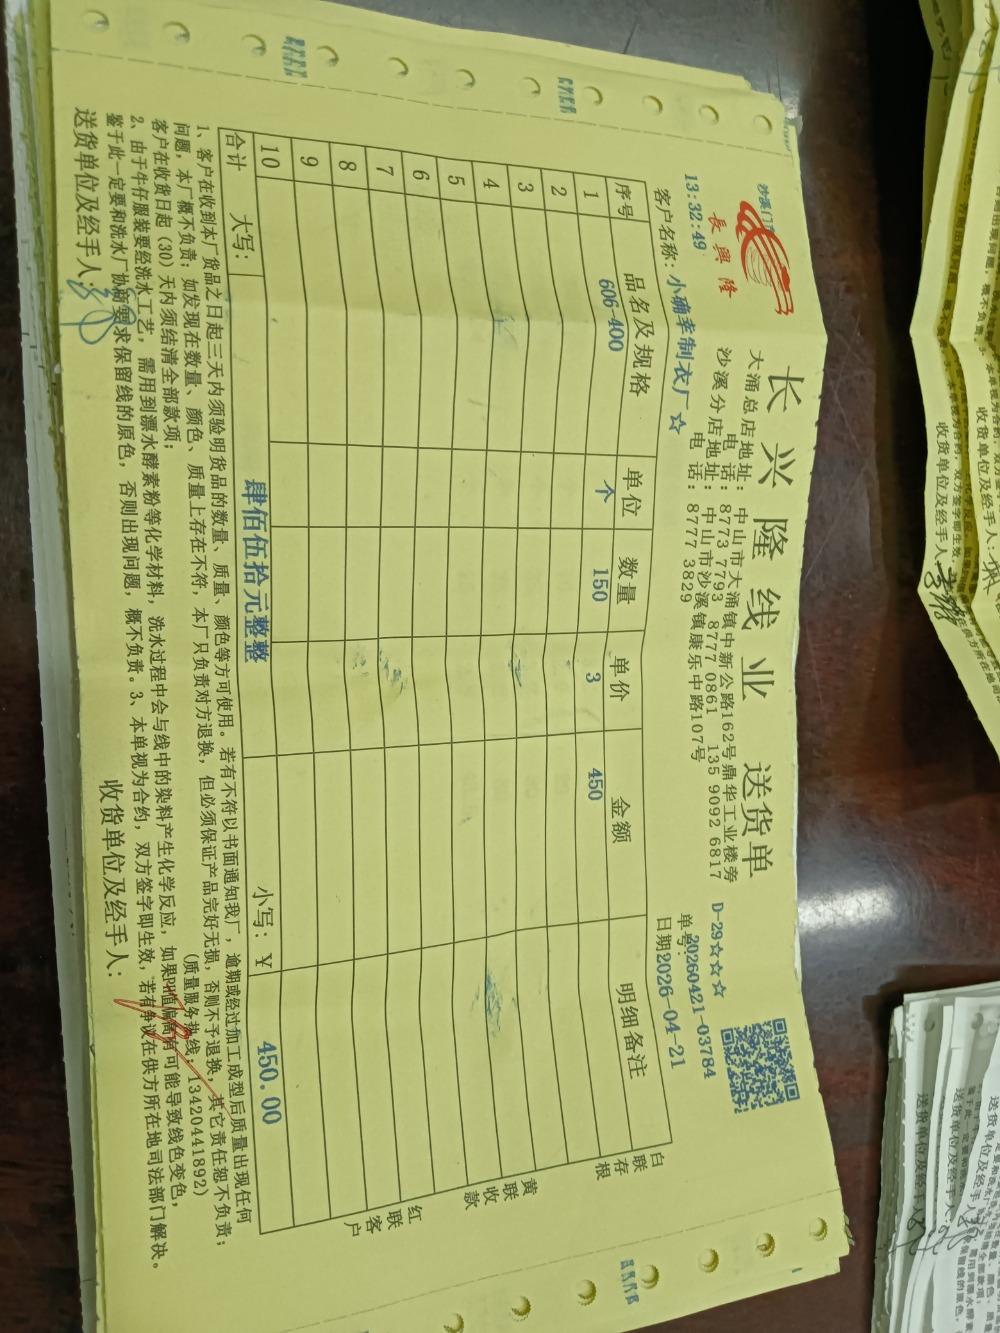 沙溪门市
長興隆
长兴隆线业 送货单
大涌总店地址：中山市大涌镇中新公路162号鼎华工业楼旁
电 话：8773 7793 8777 0861 135 9092 6817
沙溪分店地址：中山市沙溪镇康乐中路107号
电 话：8777 3829
D-29☆☆☆
13:32:49
单号：20260421-03784
客户名称：小确幸制衣厂☆
日期2026-04-21
序号 品名及规格 单位 数量 单价 金额 明细备注
1 606-400 个 150 3 450
2
3
4
5
6
7
8
9
10
合计 大写： 肆佰伍拾元整整 小写：￥ 450.00
白联存根
黄联收款
红联客户
1、客户在收到本厂货品之日起三天内须验明货品的数量、质量、颜色等方可使用。若有不符以书面通知我厂，逾期或经过加工成型后质量出现任何
问题，本厂概不负责；如发现在数量、颜色、质量上存在不符，本厂只负责对方退换，但必须保证产品完好无损，否则不予退换，其它责任恕不负责；
客户在收货日起（30）天内须结清全部款项； (质量服务热线：13420441892)
2、由于牛仔服装要经洗水工艺，需用到漂水酵素粉等化学材料，洗水过程中会与线中的染料产生化学反应，如果PH值偏高有可能导致线色变色，
鉴于此一定要和洗水厂协商要求保留线的原色，否则出现问题，概不负责。3、本单视为合约，双方签字即生效，若有争议在供方所在地司法部门解决。
送货单位及经手人： 收货单位及经手人：
收货单位及经手人：
收货单位及经手人
送货单位及经手人
送货单位及经手人：
送货单位及经手人